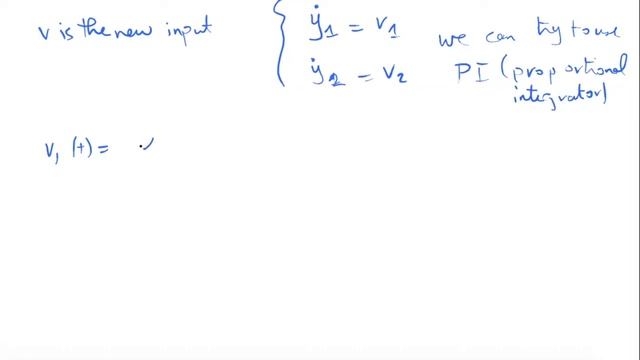 v is the new input
ẏ1 = v1
we can try to use
ẏ2 = v2
PI (proportional
integrator)
v1 (t) =